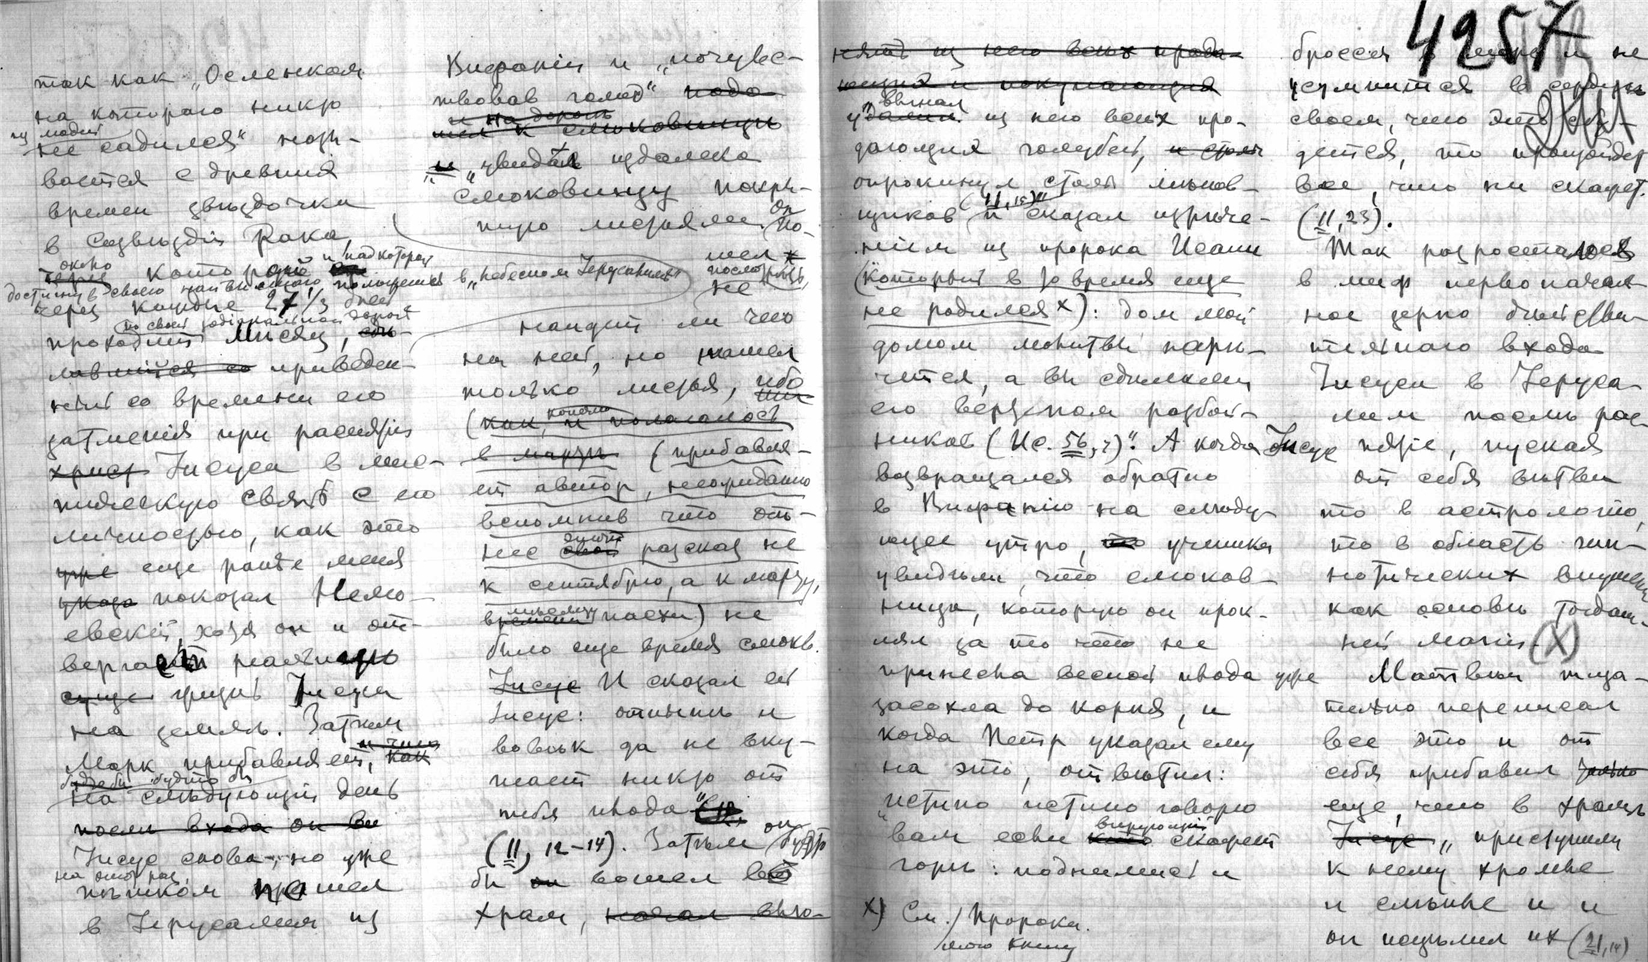 так как „Осленокая
на котораго никто
из людей
не садился" назы-
вается с древних
времен звѣздочки
в созвѣздіи Рака,
около которой и над которой
достигнув своего наивысшаго положенія в „небесном Іерусалимѣ"
через каждые 27 1/3 дней
по своей зодіакальной дороге
проходит Мѣсяц,
лившійся со приведен-
ный со времени его
затменія при распятіи
христ Іисуса в мис-
тическую связь с его
личностью, как это
уже еще ранѣе меня
указа показал Немо-
евскій, хотя он и от-
вергает реальную
суще Іисуса
на землѣ. Затѣм
Марк прибавляет, как
будто бы
на слѣдующій день
послѣ входа он
Іисус снова, но уже
на этот раз
пѣшком пошел
в Іерусалим из
Вифаніи и „почувс-
твовав голод"
и на дорогѣ
к смоковницы
и „увидѣл издалека
смоковницу покры-
тую листьями он по-
шел
посмотрѣть
не
найдет ли чего
на ней, но нашел
только листья, ибо
(как, конечно, и полагалось
в мартѣ (прибавля-
ет автор, неожиданно
вспомнив что от-
нес свой разсказ не
к сентябрю, а к марту,
времени пасхи) не
было еще время смокв.
Іисус И сказал ей
Іисус: отнынѣ и
вовѣк да не вку-
шает никто от
тебя плода"
(11, 12-14). Затѣм он будто
бы он вошел в
храм, начал выго-
нять из него всѣх прода-
ющих и покупающих
выгнал
удалил из него всѣх про-
дающих голубей, и столы
опрокинул столы мѣнов-
(11, 15)"
щиков и сказал изрече-
ніем из пророка Исаіи
(который в то время еще
не родился х): дом мой
домом молитвы наре-
чется, а вы сдѣлали
его вертепом разбой-
ников (Ис. 56, 7)". А когда Іисус
возвращался обратно
в Вифанію на слѣду-
ющее утро, то ученики
увидѣли, что смоков-
ница, которую он прок-
лял за то что не
принесла весной плода уже
засохла до корня, и
когда Петр указал ему
на это, отвѣтил:
„истино истино говорю
вам если вѣрующій скажет
горѣ: поднимись и
х) См. Пророки.
мою книгу
4257
бросся в море и не
усумнится в сердцѣ
своем, что это сбу-
дется, то произойдет
все, что ни скажет.
(11, 23).
Так розросталось
в миф первоначаль-
ное зерно дѣйстви-
тельнаго входа
Іисуса в Іеруса-
лим послѣ рас-
пятіе, пуская
от себя вѣтви
то в астрологію,
то в область гип-
нотических внушений
как основы тогдаш-
ней магіи (Х)
Матвѣй тща-
тельно переписал
все это и от
себя прибавил только
еще, что в храмѣ
Іисус „приступили
к нему хромые
и слѣпые и и
он исцѣлил их (21, 14)